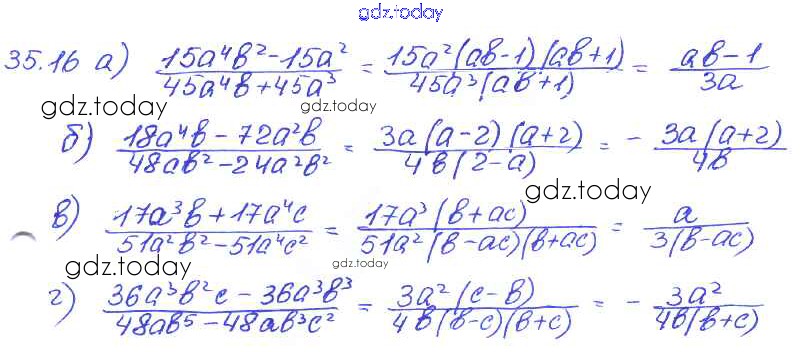 gdz.today
35.16 а) (15a⁴b² - 15a²)/(45a⁴b + 45a³) = (15a²(ab-1)(ab+1))/(45a³(ab+1)) = (ab-1)/(3a)
gdz.today gdz.today
б) (18a⁴b - 72a²b)/(48ab² - 24a²b²) = (3a(a-2)(a+2))/(4b(2-a)) = - (3a(a+2))/(4b)
gdz.today
в) (17a³b + 17a⁴c)/(51a²b² - 51a⁴c²) = (17a³(b+ac))/(51a²(b-ac)(b+ac)) = a/(3(b-ac))
gdz.today gdz.today
г) (36a³b²c - 36a³b³)/(48ab⁵ - 48ab³c²) = (3a²(c-b))/(4b(b-c)(b+c)) = - (3a²)/(4b(b+c))